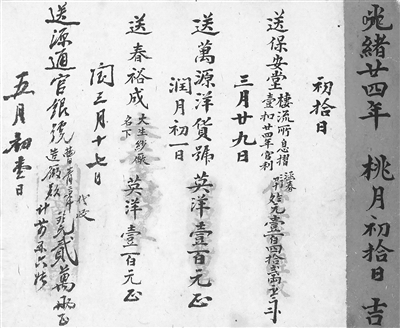 光緒廿四年 桃月初拾日 吉
初拾日
送保安堂 棲流所息摺 壹扣廿四年官利
壹百四拾
三月廿九日
送萬源洋貨號 英洋壹百元正
潤月初一日
送春裕成 大生紗廠名下 英洋壹百元正
閏三月十七日
送源通官銀號 貳萬
五月初壹日